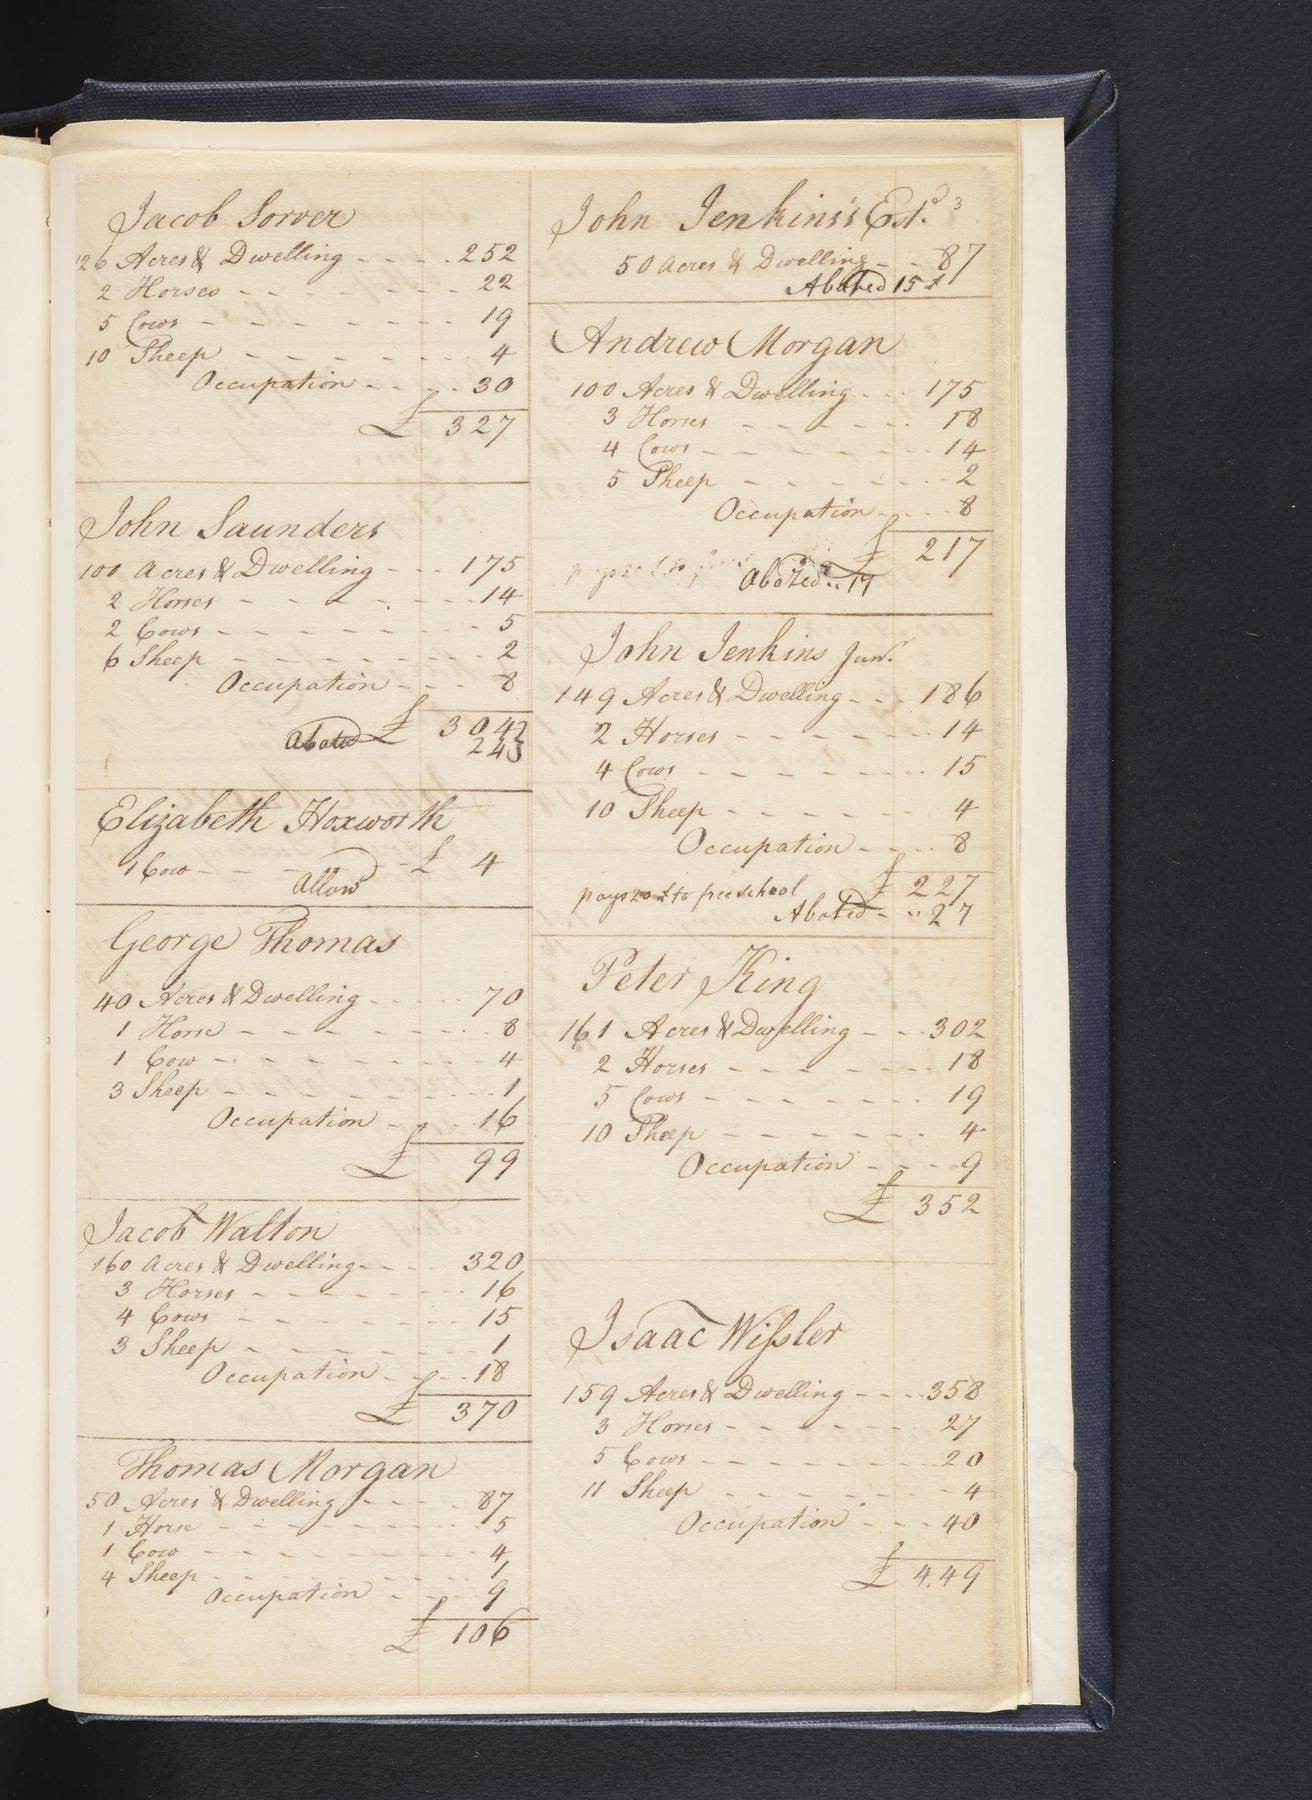 Jacob Sorver
126 Acres & Dwelling - - - - 252
2 Horses - - - - - - - 22
5 Cows - - - - - - - 19
10 Sheep - - - - - - 4
Occupation - - - - 30
£ 327
John Saunders
100 Acres & Dwelling - - - 175
2 Horses - - - - - - - 14
2 Cows - - - - - - - 5
6 Sheep - - - - - - - 2
Occupation - - - - 8
Abated £
Elizabeth Hoxworth
1 Cow - - - £ 4
Allow
George Thomas
40 Acres & Dwelling - - - - 70
1 Horse - - - - - - - 8
1 Cow - - - - - - - 4
3 Sheep - - - - - - - 1
Occupation - - - 16
£ 99
Jacob Walton
160 Acres & Dwelling - - - - 320
3 Horses - - - - - - - 16
4 Cows - - - - - - - 15
3 Sheep - - - - - - 1
Occupation - - - - 18
£ 370
Thomas Morgan
50 Acres & Dwelling - - - - 87
1 Horse - - - - - - - 5
1 Cow - - - - - - - 4
4 Sheep - - - - - - - 1
Occupation - - - 9
£ 106
John Jenkins's Est. 3
50 Acres & Dwelling - - 87
Abated 15
Andrew Morgan
100 Acres & Dwelling - - - 175
3 Horses - - - - - - 18
4 Cows - - - - - - - 14
5 Sheep - - - - - - - 2
Occupation - - - - 8
£ 217
Abated .. 17
John Jenkins Junr.
149 Acres & Dwelling - - - 186
2 Horses - - - - - - - 14
4 Cows - - - - - - - 15
10 Sheep - - - - - - 4
Occupation - - - - 8
£ 227
pays 20 £ to free school
Abated - .. 27
Peter King
161 Acres & Dwelling - - - 302
2 Horses - - - - - - - 18
5 Cows - - - - - - - 19
10 Sheep - - - - - - 4
Occupation - - - 9
£ 352
Isaac Wissler
159 Acres & Dwelling - - - - 358
3 Horses - - - - - - 27
5 Cows - - - - - - - 20
11 Sheep - - - - - - - 4
Occupation - - - 40
£ 449